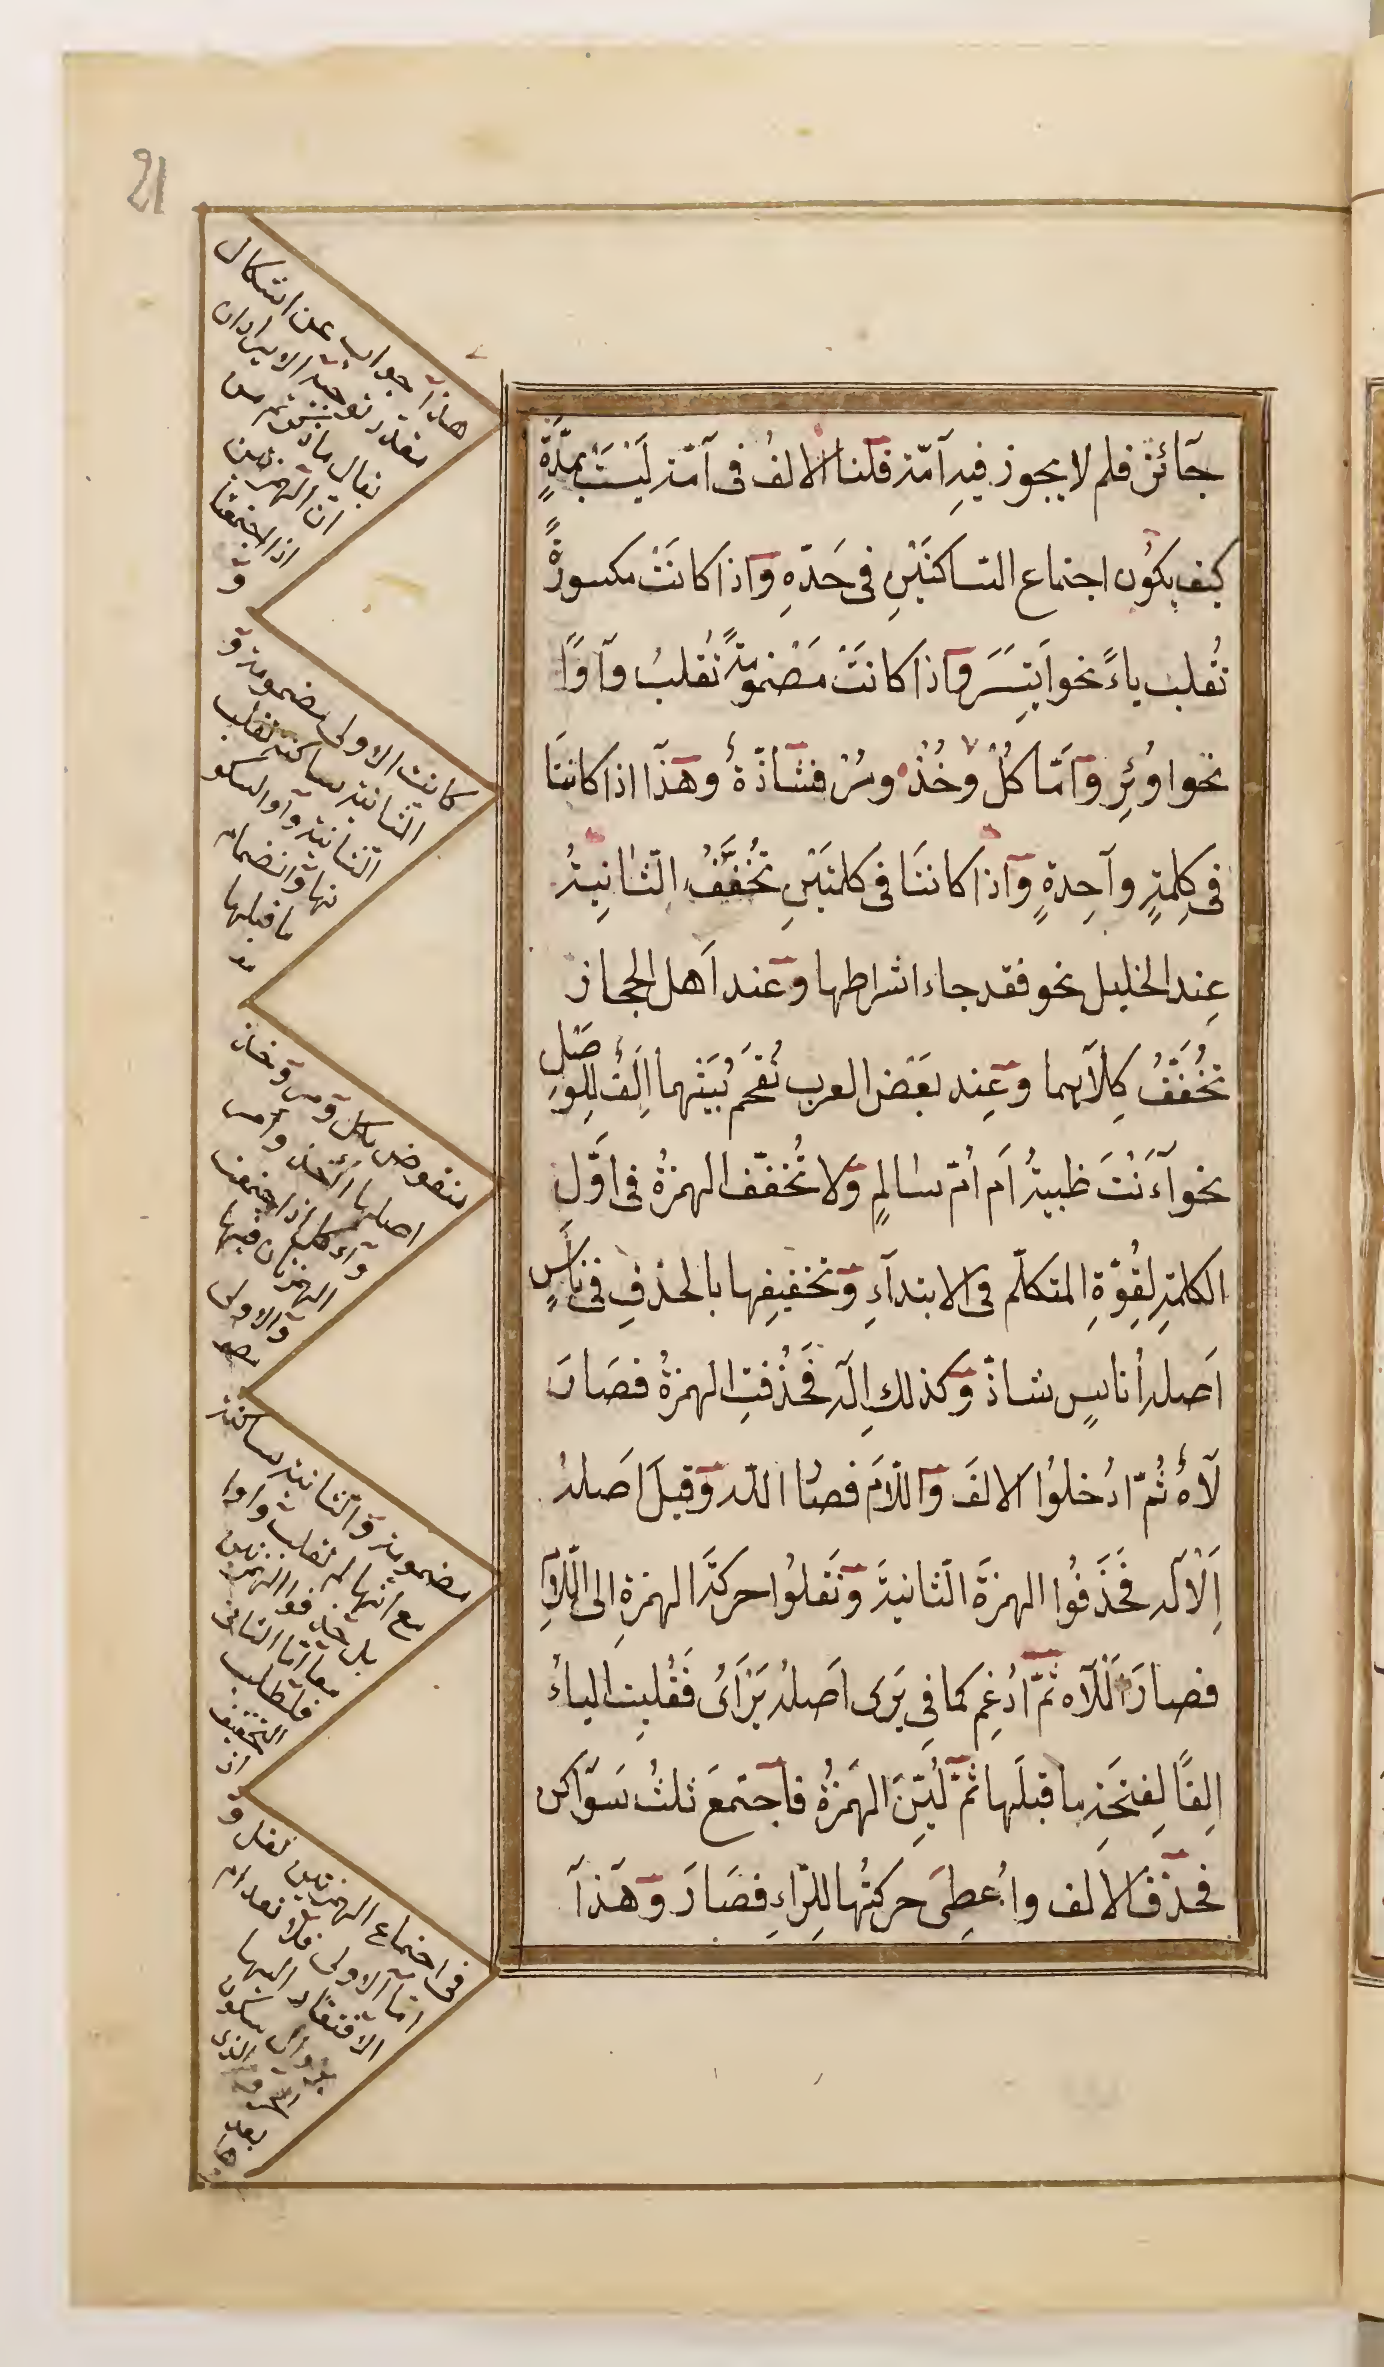 21
جَآئز فلم لا يجوز فيهِ آمّة قلنا الالفُ فى آمّة لَيْسَتْ بمدّةٍ
كيف يكوُن اجتماع السّاكنَيْنِ فى حَدّهِ وَاذا كانَتْ مكسورةً
تُقلب ياءً نحو اَيْسَرَ وَاذا كانَتْ مَضْمُومَةً تُقلبُ وآوًا
نحو اوُثِرِ وَامّا كُلْ وَخُذْ ومُرْ فشاذّةٌ وهَذَا اذا كانتَا
فى كِلمةٍ وآحِدةٍ وَاذا كانتَا فى كلمتَيْنِ تُخُفَّفُ الثّانِيةُ
عِند الخليل نحو فقد جاء اشراطها وعَند اَهل الحجاز
تُخُفَّفُ كِلاَهما وعَِند بَعَْض العرب تُقحَم بَيْنَهما اَلِفٌ للِفَصْلِ
نحو آءَنْتَ ظَبيةُ اَم اُمّ سٰالمٍ وَلا تُخفّف الهمزةُ فى اَوّل
الكلمةِ لِقُوّةِ المتكلّم فى الابتدآءِ وَتخفيفِها بالحذفِ فى نٰاسٍ
اَصلهُ اُناسٍ شاذّ وَكذلكِ اِلٓه فَحُذفتِ الهمزةُ فصَارَ
لآهٌ ثُمّ ادُخلوُا الالفَ وَاللّامَ فصَارَ اللّه وَقيلَ اَصلهُ
اَلْاِلَه فَحَذَفُوا الهمزَةَ الثّانيةَ وَنَقلوُا حركَةَ الهمزةِ الى اللّامِ
فصارَ اَللِّاَه ثُمّ اُدْغِم كما فى يَرَى اَصلهُ يَرْاَىُ فَقُلبِت الياءُ
اَلِفًا لِفتحَةِ ما قبلَها ثُمّ لُيّنَِ الهَمزةُ فاَجتمعَ ثلثُ سَوَاكن
فحذفَ الالف واُعطِىَ حركتُها للِرّاءِ فصَارَ وَهَذَا
هذا جواب عن اشكال
مقدر توجيه الايراد ان
يقال ما ذكرتم من
انّ الهمزتين
اذا اجتمعتا
وَ
كانت الاولى مضمومة وَ
الثانية ساكنة تقلب
الثانية وَاوا لسكو
نها وَانضمام
ما قبلها
منقوض بكل وَمر وَخذ
اصلها اُءخذ وَاُءمر
وَاُءكل اذا اجتمعت
الهمزتان فيها
وَالاولى
مضمومة وَالثانية ساكنة
مع انّها لم تقلب وَاوا
بل حذفوا الهمزتين
معا امّا الثانى
فلطلب
التخفيف
اذ
فى اجتماع الهمزتين ثقل وَ
امّا الاولى فلانعدام
الافتقار اليها
الذى
بعد
ها